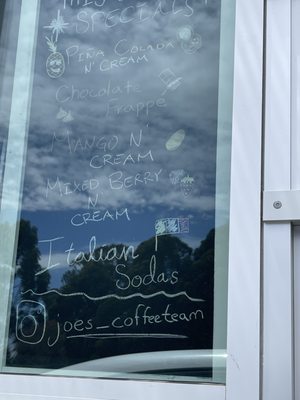 SPECIALS
PIÑA COLADA
N' CREAM
Chocolate
Frappe
MANGO N
CREAM
MIXED BERRY
N
CREAM
Italian
Sodas
joes_coffeeteam